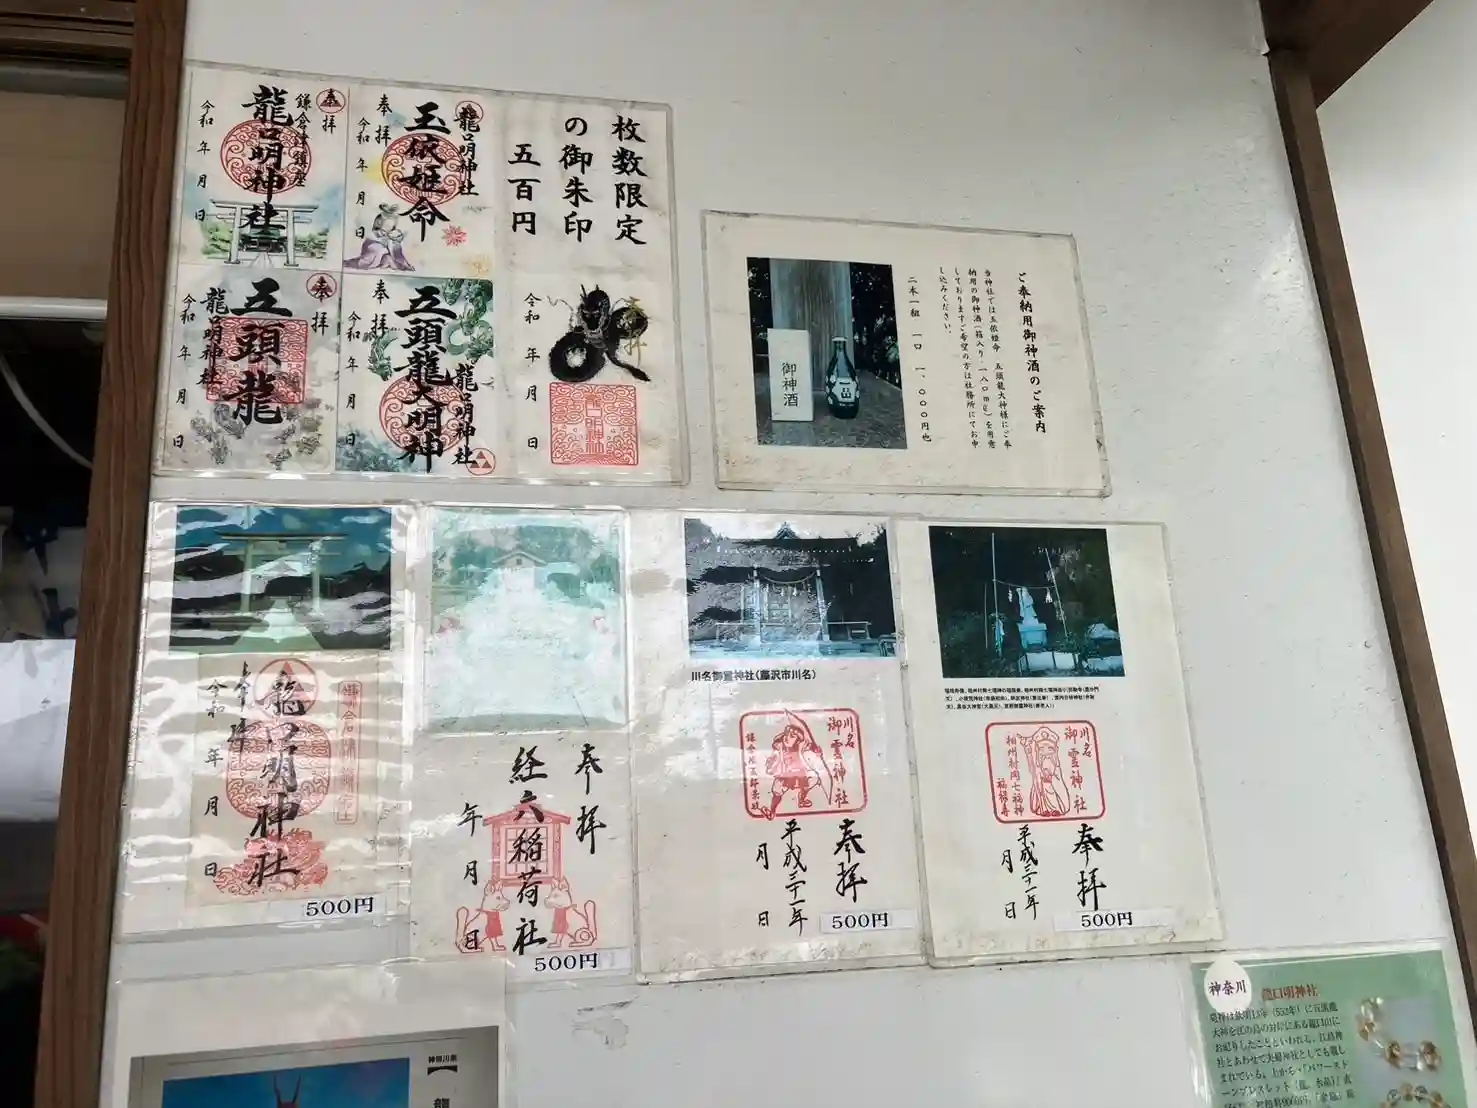 枚数限定
の御朱印
五百円
奉拝
龍口明神社
玉依姫命
令和 年 月 日
奉拝
鎌倉津鎮座
龍口明神社
令和 年 月 日
奉拝
令和 年 月 日
龍口明神社
奉拝
龍口明神社
五頭龍大明神
令和 年 月 日
奉拝
五頭龍
龍口明神社
令和 年 月 日
ご奉納用御神酒のご案内
当神社では玉依姫命 五頭龍大神様にご奉
納用の御神酒(箱入り一八〇mℓ)を用意
しておりますご希望の方は社務所にてお申
し込みください。
二本一組 一口 一、〇〇〇円也
御神酒
奉拝
龍口明神社
令和 年 月 日
500円
奉拝
経六稲荷社
年 月 日
500円
川名御霊神社(藤沢市川名)
川名
御霊神社
奉拝
平成三十一年
月 日
500円
川名
御霊神社
相州村岡七福神
福禄寿
奉拝
平成三十一年
月 日
500円
神奈川
龍口明神社
神奈川県
【龍